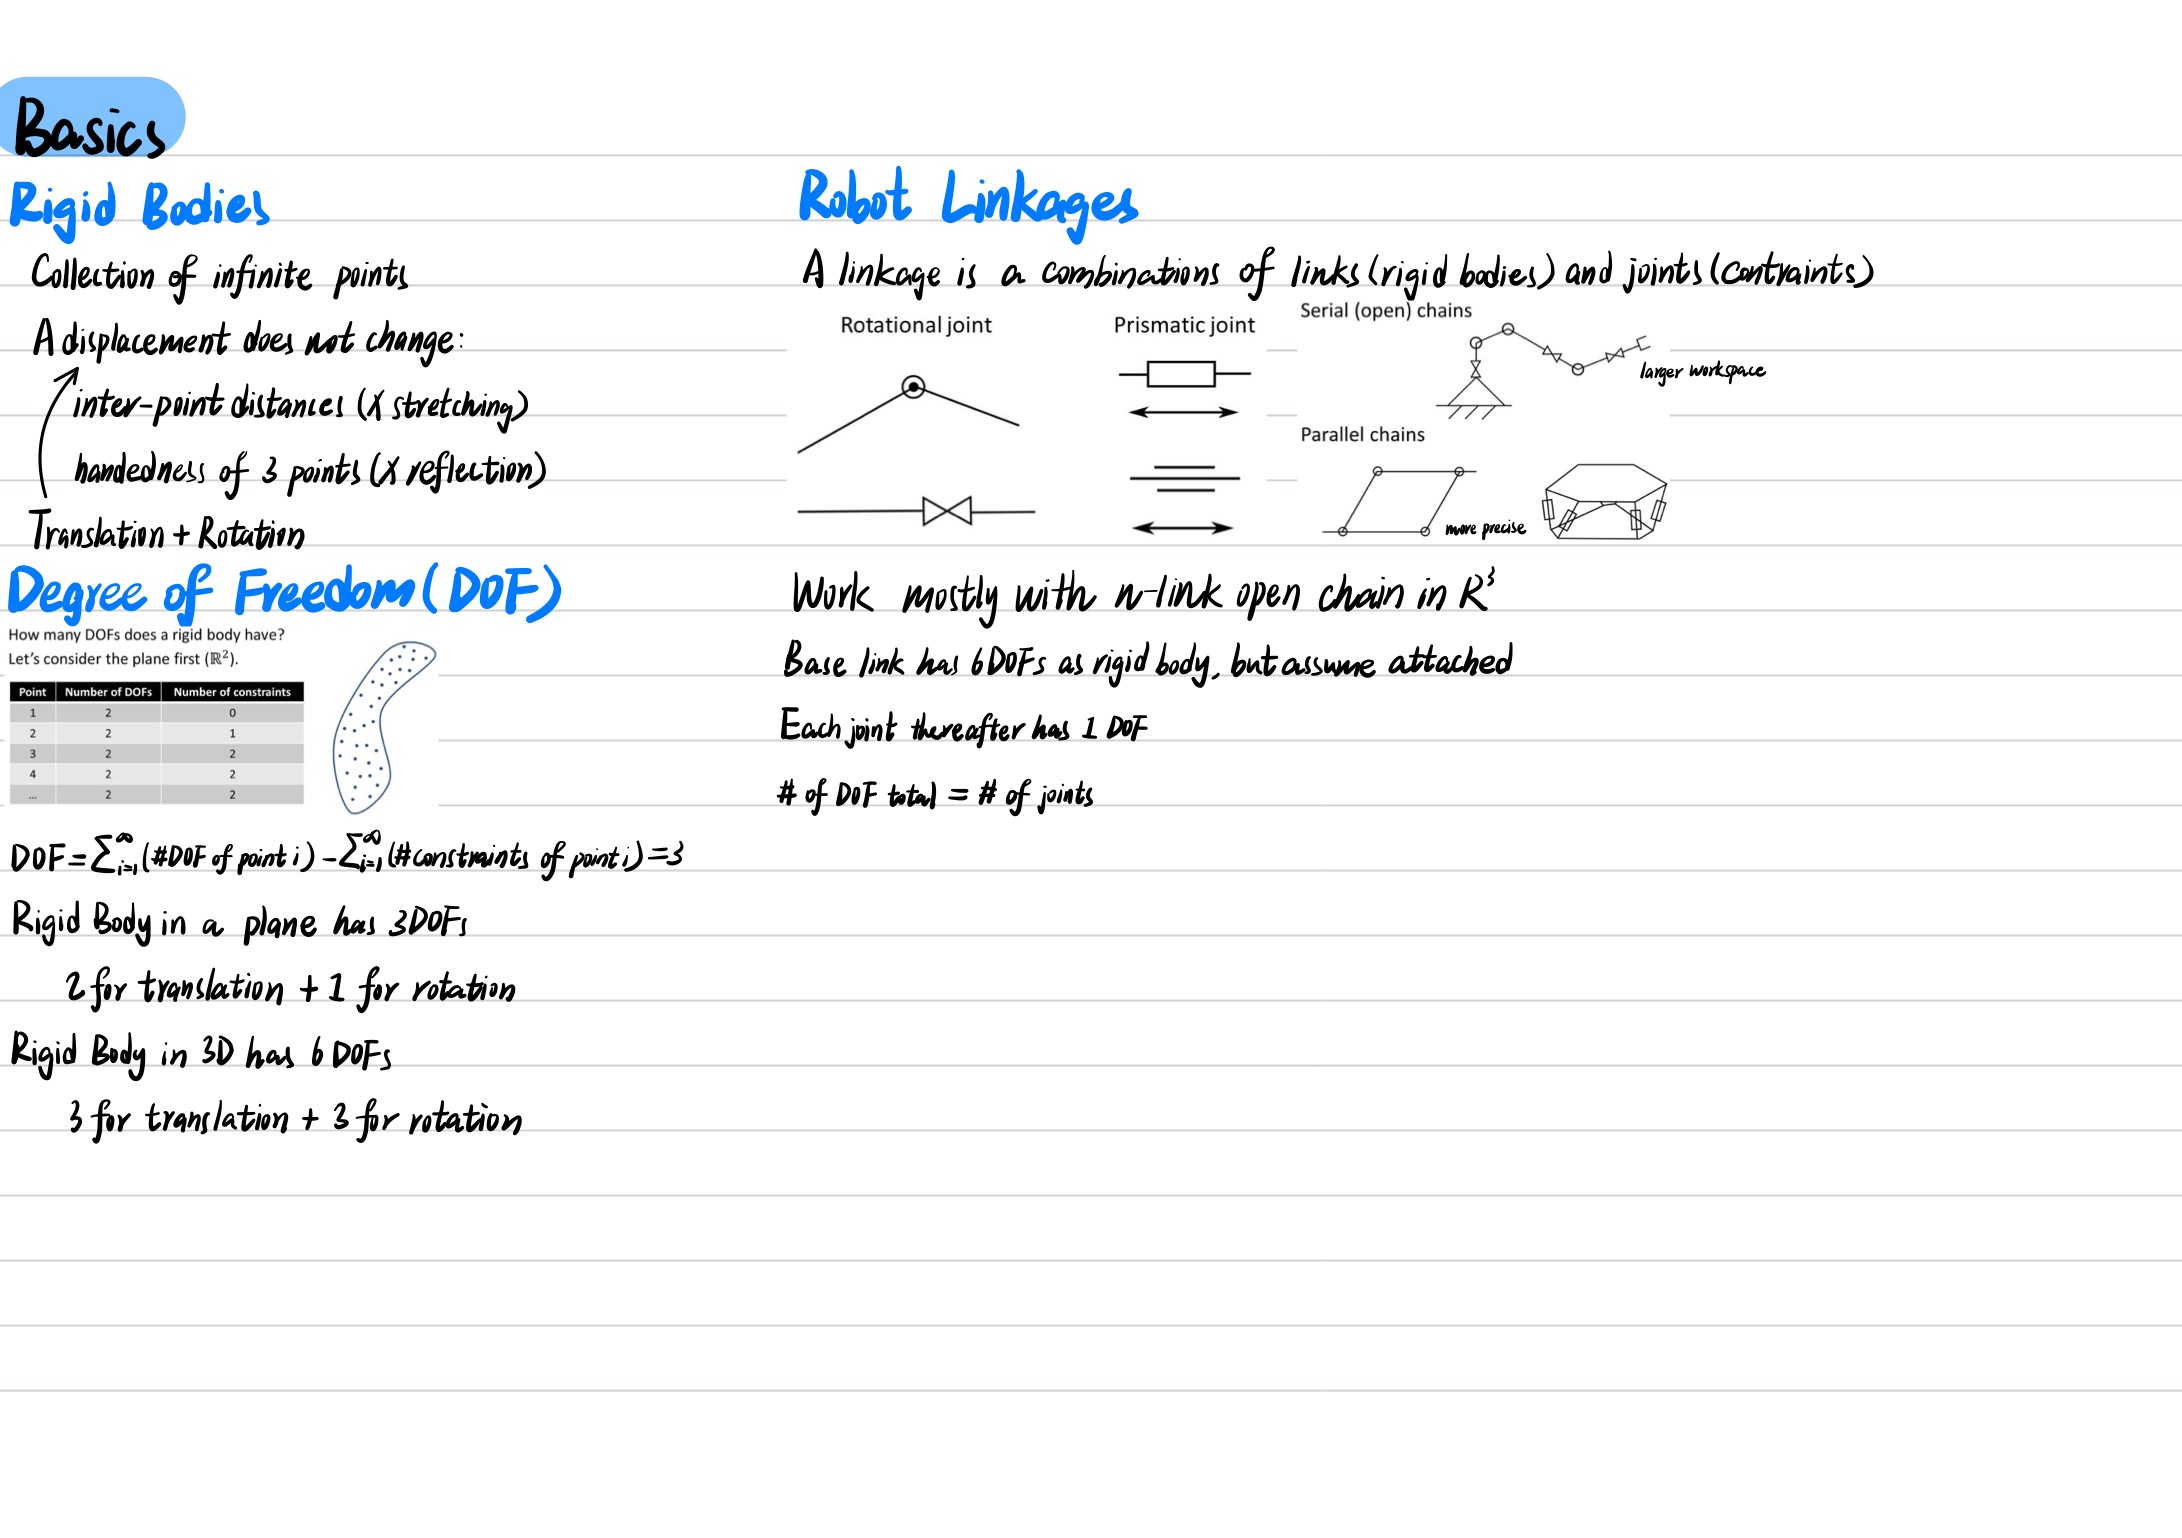 Basics
Rigid Bodies
Collection of infinite points
A displacement does not change:
inter-point distances (X stretching)
handedness of 3 points (X reflection)
Translation + Rotation
Degree of Freedom (DOF)
How many DOFs does a rigid body have?
Let's consider the plane first (ℝ²).
Point Number of DOFs Number of constraints
1 2 0
2 2 1
3 2 2
4 2 2
... 2 2
DOF = ∑_{i=1}^{∞} (#DOF of point i) - ∑_{i=1}^{∞} (#constraints of point i) = 3
Rigid Body in a plane has 3DOFs
2 for translation + 1 for rotation
Rigid Body in 3D has 6 DOFs
3 for translation + 3 for rotation
Robot Linkages
A linkage is a combinations of links (rigid bodies) and joints (contraints)
Rotational joint
Prismatic joint
Serial (open) chains
larger workspace
Parallel chains
more precise
Work mostly with n-link open chain in R³
Base link has 6DOFs as rigid body, but assume attached
Each joint thereafter has 1 DOF
# of DOF total = # of joints